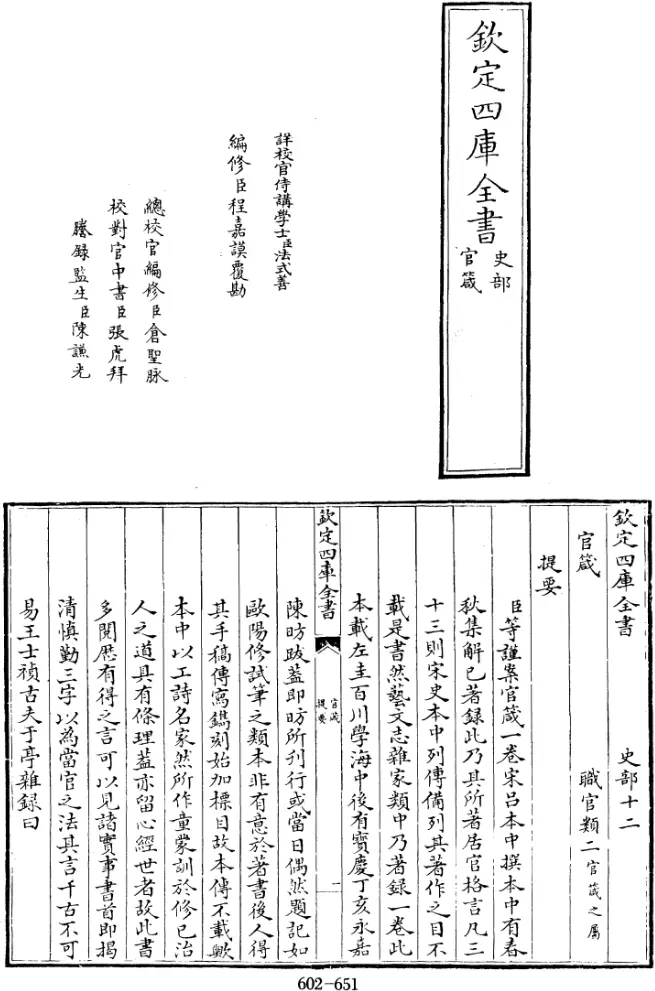 欽定四庫全書
史部
官箴
詳校官侍講學士臣法式善
編修臣程嘉謨覆勘
總校官編修臣倉聖脉
校對官中書臣張虎拜
謄錄監生臣陳謙光
欽定四庫全書 史部十二
官箴 職官類二官箴之屬
提要
臣等謹案官箴一卷宋吕本中撰本中有春
秋集解已著錄此乃其所著居官格言凡三
十三則宋史本中列傳備列其著作之目不
載是書然藝文志雜家類中乃著錄一卷此
本載左圭百川學海中後有寶慶丁亥永嘉
欽定四庫全書
官箴
提要
一
陳昉跋蓋即昉所刊行或當日偶然題記如
歐陽修試筆之類本非有意於著書後人得
其手稿傳寫鐫刻始加標目故本傳不載歟
本中以工詩名家然所作童蒙訓於修已治
人之道具有條理蓋亦留心經世者故此書
多閱歷有得之言可以見諸實事書首即揭
清慎勤三字以為當官之法其言千古不可
易王士禎古夫于亭雜錄曰
602-651